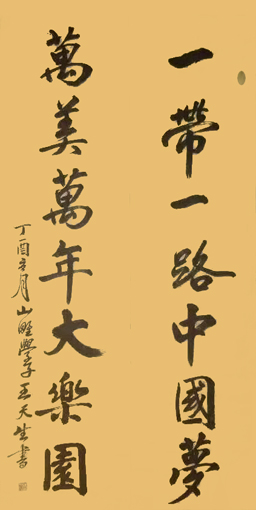 一帶一路中國夢
萬美萬年大樂園
丁酉年月山野學子王天生書